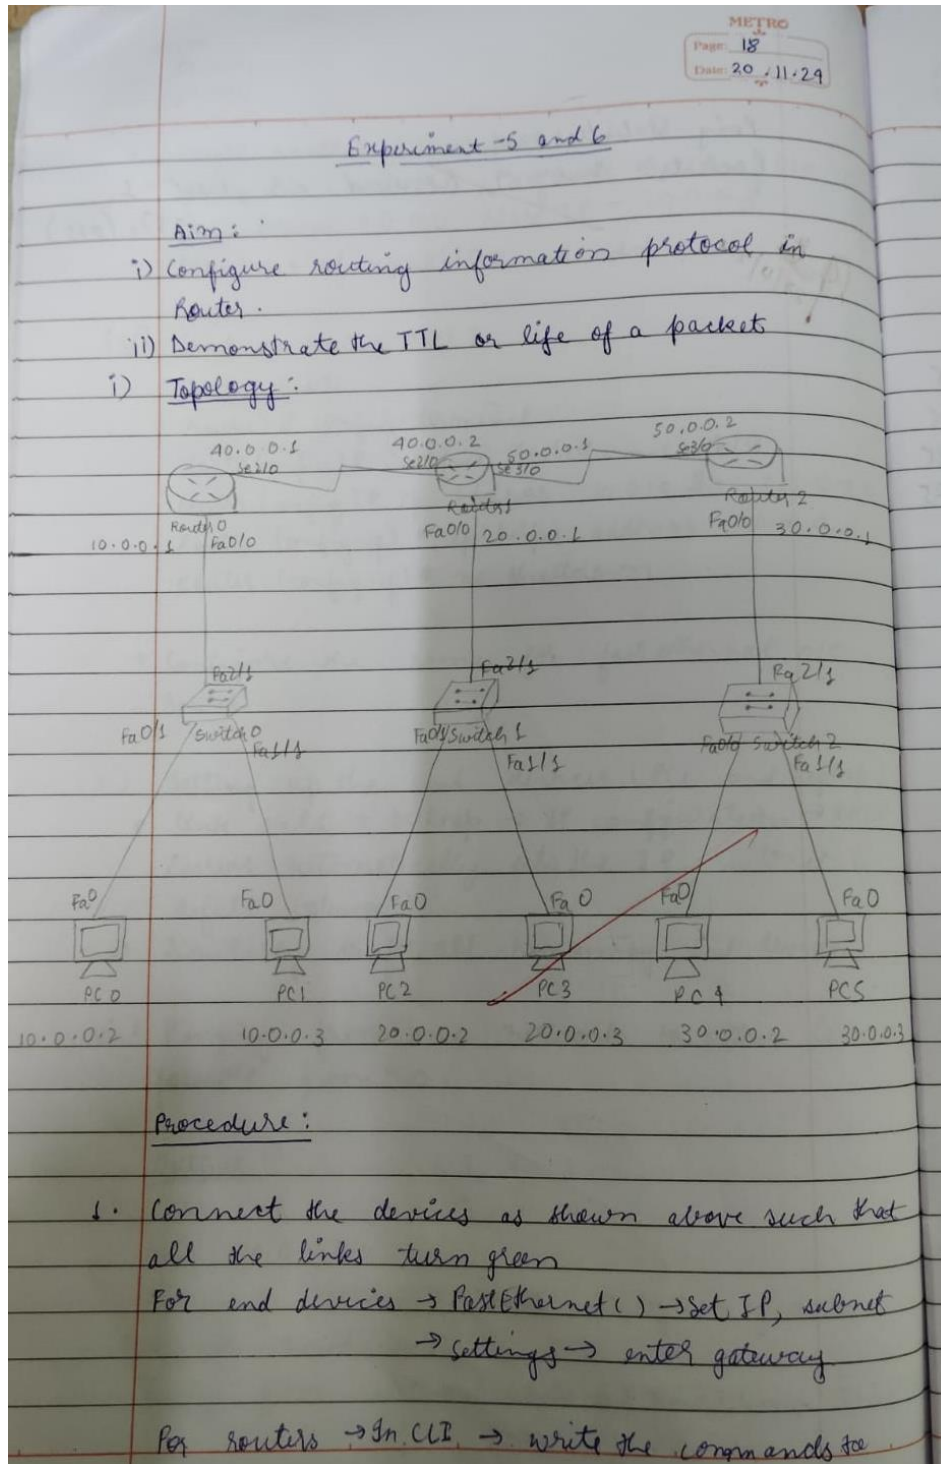 METRO
Page: 18
Date: 20.11.24
Experiment -5 and 6
Aim:
i) Configure routing information protocol in
Router.
ii) Demonstrate the TTL or life of a packet
i) Topology:
40.0.0.1 40.0.0.2 50.0.0.1 50.0.0.2
Se2/0 Se2/0 Se3/0 Se3/0
Router 0 Router 1 Router 2
10.0.0.1 Fa0/0 Fa0/0 20.0.0.1 Fa0/0 30.0.0.1
Fa2/1 Fa2/1 Fa2/1
Fa0/1 Switch 0 Fa0/1 Switch 1 Switch 2
Fa1/1 Fa1/1 Fa1/1
Fa0 Fa0 Fa0 Fa0 Fa0 Fa0
PC0 PC1 PC2 PC3 PC4 PC5
10.0.0.2 10.0.0.3 20.0.0.2 20.0.0.3 30.0.0.2 30.0.0.3
Procedure:
1. Connect the devices as shown above such that
all the links turn green
For end devices → FastEthernet() → Set IP, subnet
→ settings → enter gateway
For routers → In CLI → write the commands to